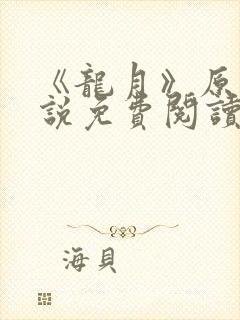 《龍月》原
說免費閱讀
海貝